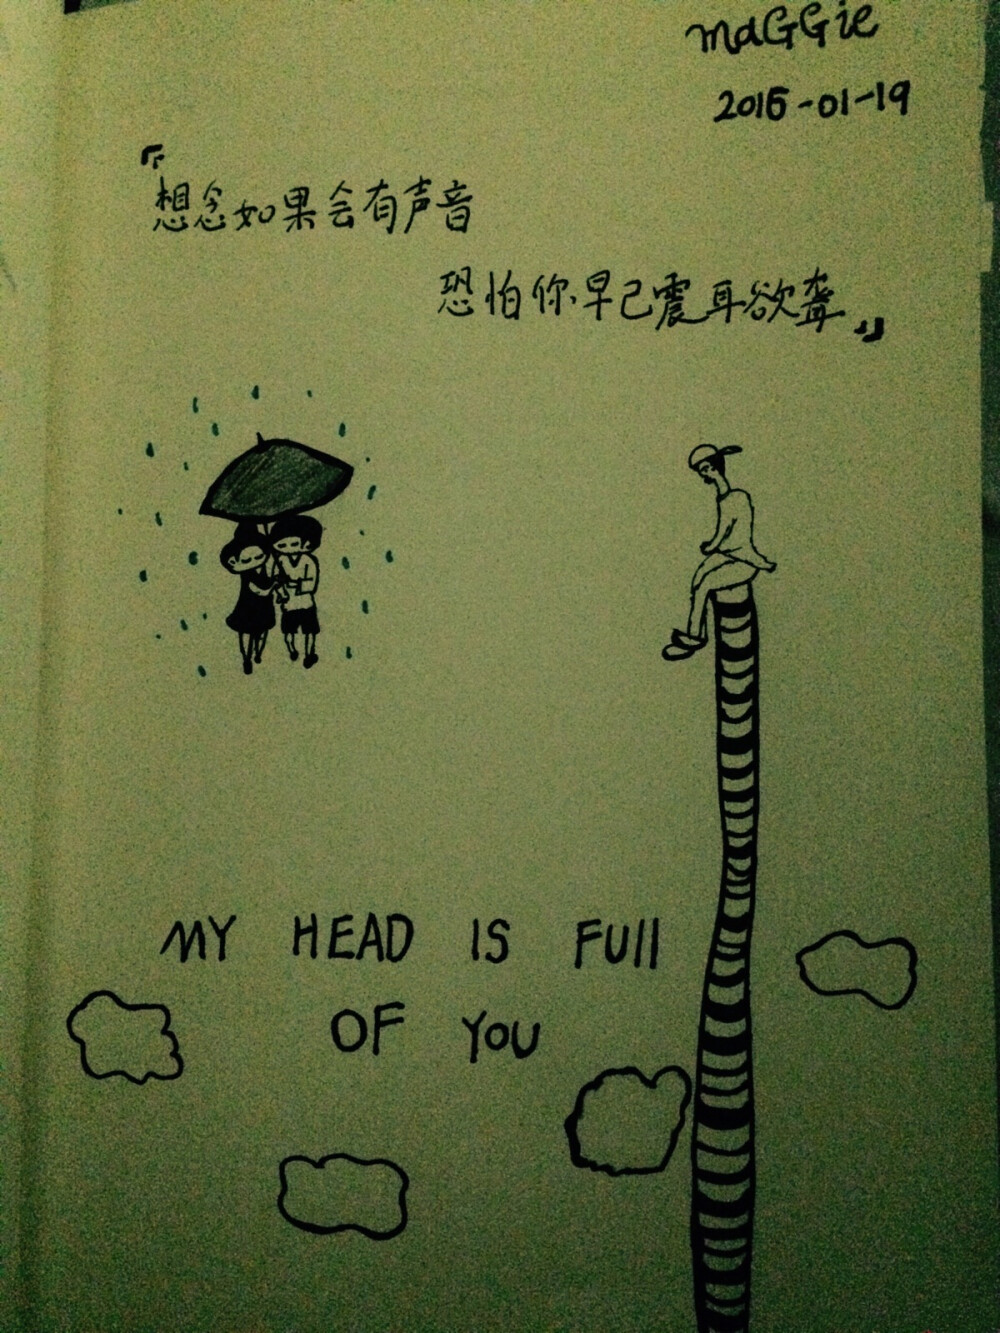 MaGGie
2015-01-19
『想念如果会有声音
恐怕你早已震耳欲聋』
MY HEAD IS FUll
OF YOU